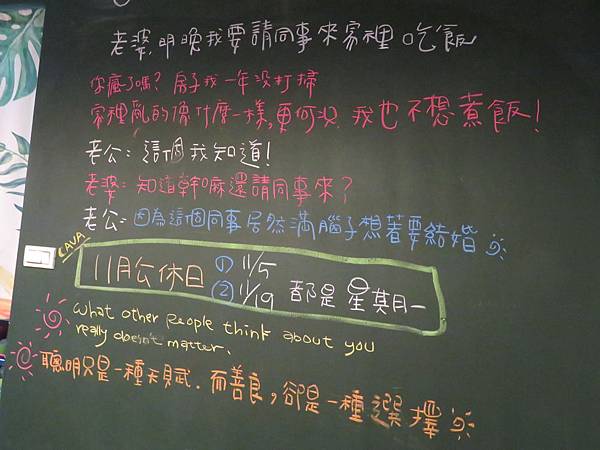 老婆,明晚我要請同事來家裡吃飯
你瘋了嗎? 房子我一年沒打掃
家裡亂的像什麼一樣,更何況 我也不想煮飯!
老公: 這個我知道!
老婆: 知道幹嘛還請同事來?
老公: 因為這個同事居然滿腦子想著要結婚
CAVA
11月公休日 ① 11/5
② 11/19 都是星期一
What other people think about you
really doesn't matter.
聰明只是一種天賦. 而善良, 卻是一種選擇